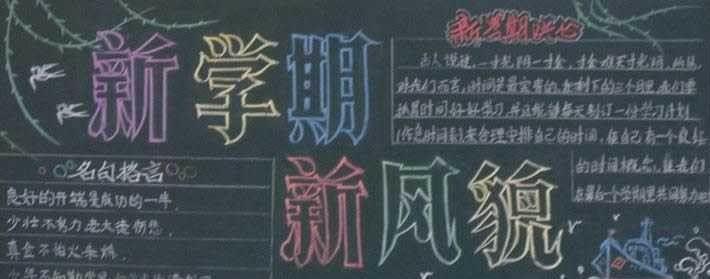 新学期
新风貌
新学期决心
古人说过,一寸光阴一寸金,寸金难买寸光阴,所以
对我们而言,时间是最宝贵的,在剩下的三个月里,我们要
时间好好学习,并且能够每天制订一份学习计划
作息时间表来合理安排自己的时间,使自己有一个良好
的时间概念,让我们
在最后一个学期里共同努力吧
名句格言
良好的开端是成功的一半.
少壮不努力老大徒伤悲.
真金不怕火来炼.